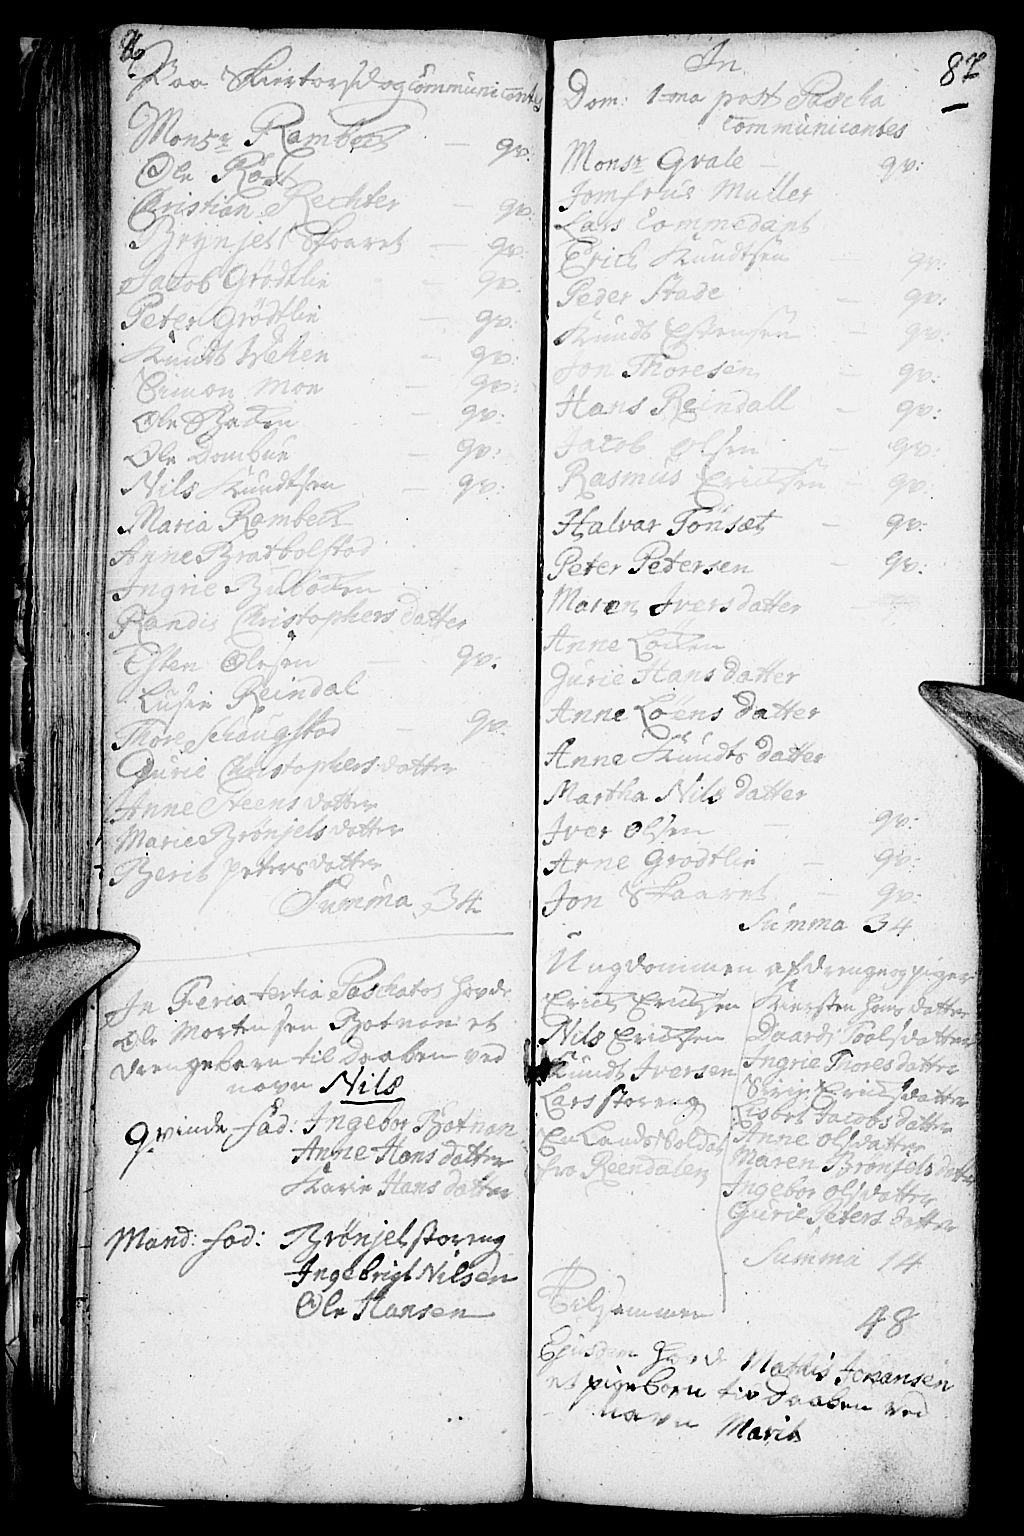 Paa Skiertorsdag Communicantes
Mons:r Rambech — qv:
Ole Röst
Christian Rechter — qv:
Brynjel Skaaret — qv:
Jacob Grödtlie — qv:
Peter Grödtlie — qv:
Knudt Vehen — qv:
Simon Moe — qv:
Ole Backen — qv:
Ole Dombue — qv:
Nils Knudtsen — qv:
Maria Rambech
Anne Bratbolstad
Ingrie
Randi Christophersdatter
Esten Olesen — qv:
Lusie Reindal
Thore Schougstad — qv:
Gurie Christophersdatter
Anne Steensdatter
Marie Brönjelsdatter
Berit Petersdatter
Summa 34
In Feria tertia Paschatos hovde
Ole Mortensen Botnan et
drengebarn til Daaben ved
navn Nils
Qvinde fad: Ingebor Botnan
Anne Hansdatter
Karie Hansdatter
Mand: fad: Brönjel storeng
Ingebrigt Nilsen
Ole Hansen
87
In
Dom: 1ma post Pascha
Communicantes
Monsr Qvale — qv:
Jomfrue Muller
Lars Commedant
Erich Knudtsen — qv:
Peder Stade — qv:
Knudt Estensen — qv:
Jon Thoresen — qv:
Hans Reindall — qv:
Jacob Olsen — qv:
Rasmus Erichsen — qv:
Halvar Tönset — qv:
Peter Petersen — qv:
Maren Iversdatter
Anne Löen
Gurie Hansdatter
Anne Löensdatter
Anne Knudtsdatter
Martha Nilsdatter
Iver Olsen — qv:
Arne Grödtlie — qv:
Jon Skaaret — qv:
Summa 34
Ungdommen af drenge og piger
Erich Erichsen
Nils Erichsen
Knudt Iversen
Lars storeng
En Land Soldat
fra Reendalen
Kiersten Hansdatter
Daardi Poolsdatter
Ingrie Thoresdatter
Sirie Erichsdatter
Lisbet Jacobsdatter
Anne Olsdatter
Maren Brönjelsdatter
Ingebor Olsdatter
Gurie Petersdatter
Summa 14
Tilsammen 48
Ejusdem hovde Mathis Johansen
et pigebarn til Daaben ved
navn Marit